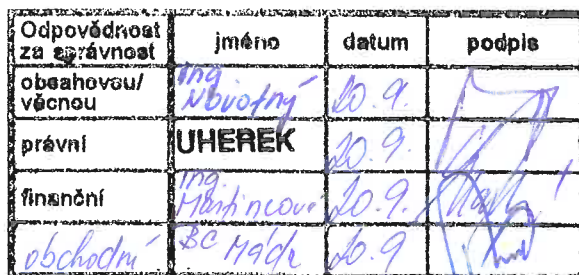 Odpovědnost za správnost jméno datum podpis
obsahovou/ věcnou Ing Novotný 20.9.
právní UHEREK 20.9.
finanční Ing. 20.9.
obchodní BC 20.9